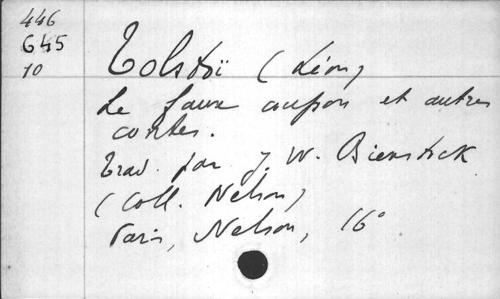 446
645
10
Tolstoï (Léon)
Le faux coupon et autres
contes.
Trad. par J. W. Bienstock
(Coll. Nelson)
Paris, Nelson, 16°